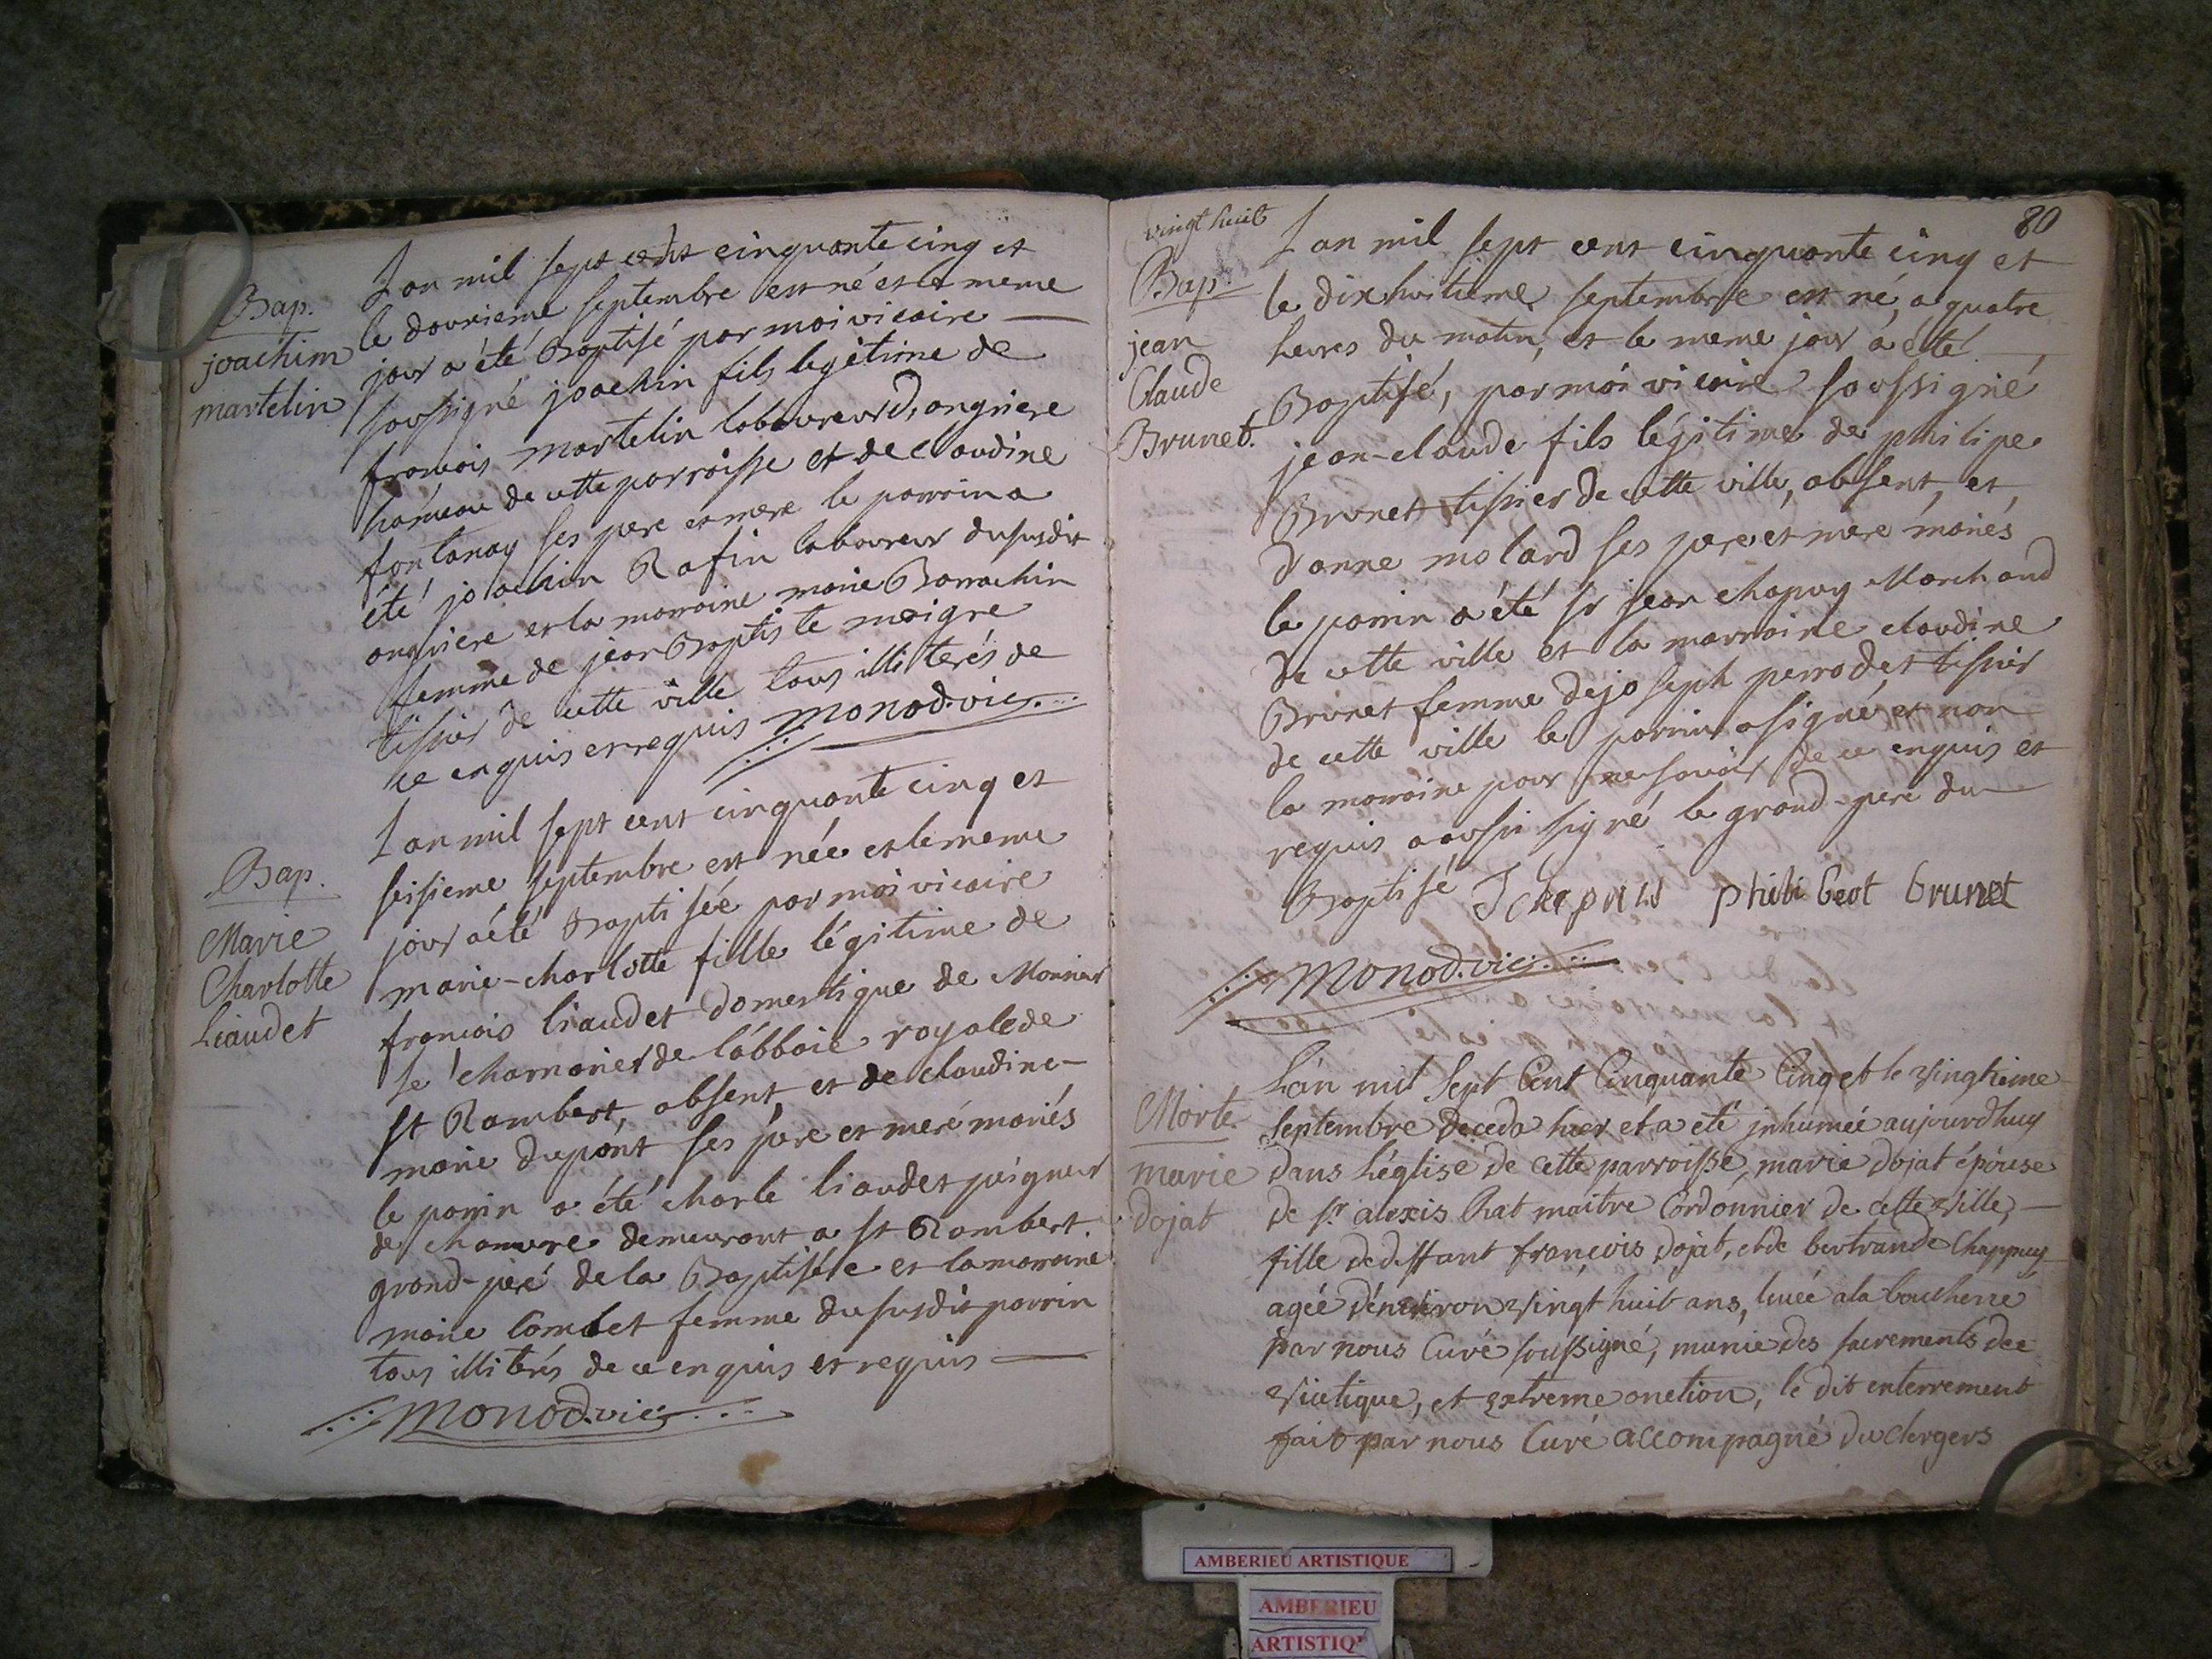 Bap.
joachim
martelin
Lan mil sept cent cinquante cinq et
le douzieme septembre est né et le meme
jour a été Baptisé par moi vicaire
soussigné joachin fils legitime de
francois martelin laboureur d'angriere
hameau de cette parroisse et de claudine
fontanay ses pere et mere le parrain a
été joachin Rafin laboureur dususdit
angriere et la marraine marie Barrachin
femme de jean Baptiste maigre
tissier de cette ville tous illiterés de
ce enquis et requis monod. vic.
Bap.
Marie
Charlotte
Liaudet
Lan mil sept cent cinquante cinq et
seisieme septembre est née et le meme
jour a été Baptisée par moi vicaire
marie-charlotte fille légitime de
francois liaudet domestique de Monsieur
le chamarier de l'abbaie royale de
st Rambert, absent, et de claudine-
marie dupont ses pere et mere mariés
le parrin a été charle liaudet peigneur
de chanvre demeurant a st Rambert
grand-pere de la Baptisée et la marraine
marie Combet femme du susdit parrin
tous illiterés de ce enquis et requis
monod. vic.
vingt huit
80
Bap.
jean
Claude
Brunet.
Lan mil sept cent cinquante cinq et
le dixhuitieme septembre est né, a quatre
heures du matin, et le meme jour a été
Baptisé, par moi vicaire soussigné
jean-claude fils légitime de philipe
Brunet tissier de cette ville, absent, et
d'anne molard ses pere et mere mariés
le parrin a été sr jean chapuy Marchand
de cette ville et la marraine claudine
Brunet femme de joseph perrodet tissier
de cette ville le parrin a signé, et non
la marraine pour ne savoir de ce enquis et
requis a aussi signé le grand-pere du
Baptisé J chapuis philibert brunet
monod. vic.
Morte
marie
dojat
L'an mil Sept Cent Cinquante Cinq et le vingtieme
Septembre deceda hier et a eté inhumée aujourdhuy
dans l'église de cette parroisse, marie dojat épouse
de sr alexis Rat maitre Cordonnier de cette ville,
fille de deffunt françois dojat, et de bertrande Chappuy
agée d'environ vingt huit ans, levée a la boucherie
par nous Curé soussigné, munie des sacrements de
viatique, et extreme onction, le dit enterrement
fait par nous Curé accompagné du clergers
AMBERIEU ARTISTIQUE
AMBERIEU
ARTISTIQ